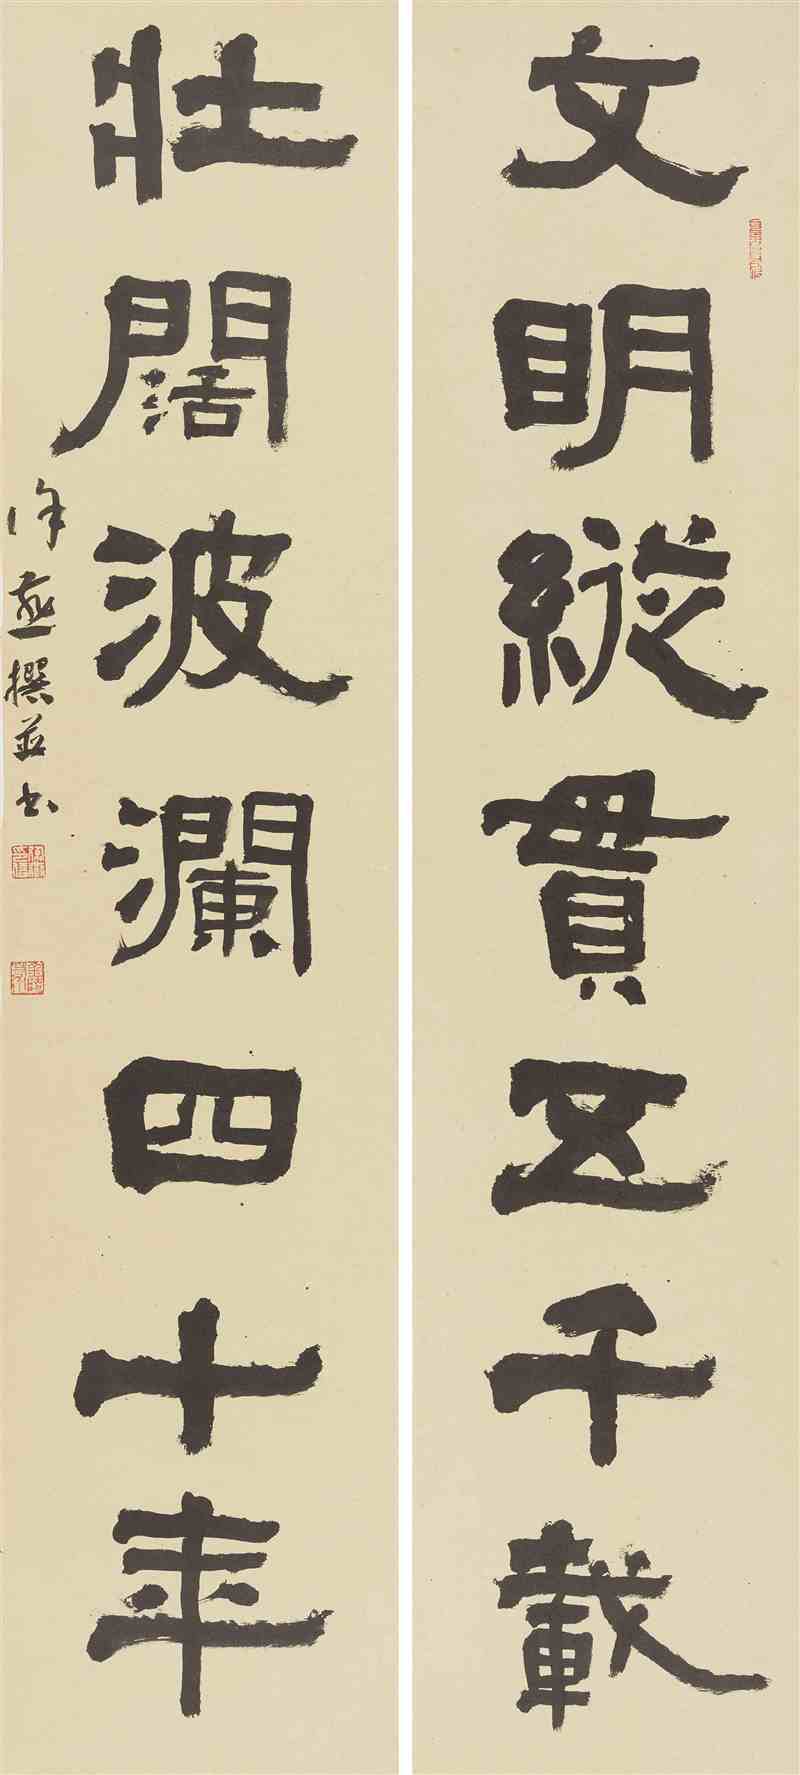 文明縱貫五千載
壯闊波瀾四十年
徐燕撰並書